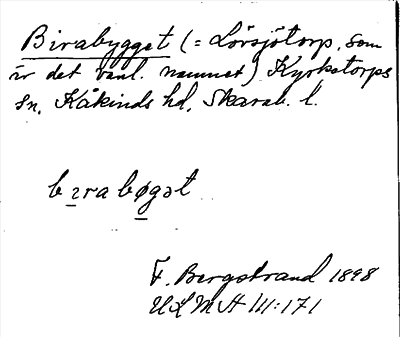 Birabygget (= Lövsjötorp, som
är det vanl. namnet) Kyrkatorps
sn. Kåkinds hd. Skarab. l.
bɪra bøgət
F. Bergstrand 1898
ULMA 111:171